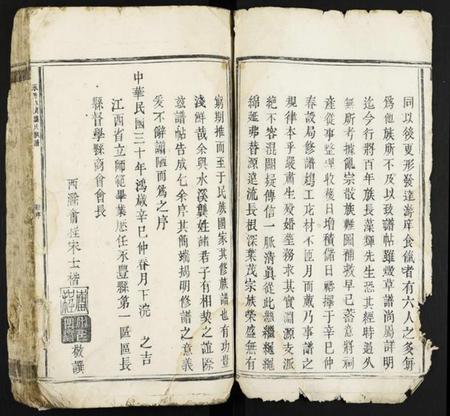 同以後更形發達游庠食餼者有六人之多每
為他族所不及以致譜帖雖燬草譜尚屬詳明
迄今行將百年族長藻輝先生恐其經時過久
無所考據亂宗散族難圖補救早已蓄意將祠
產從事整理收穫日增積儲日裕擇于辛巳仲
春設局修譜趨工庀材不匝月而蕆乃事譜之
規律本乎嚴肅生歿婚塟務求其實淵源支派
絕不容混闕疑傳信一脈清眞從此懸繩繩
綿延弗替源遠流長根深葉茂宗族榮盛無有
窮期推而至于民族國家其修族譜也有功豈
淺鮮哉余與水溪龔姓諸君子有相契之誼際
茲譜帖告成乞余序其簡端揚明修譜之意義
爰不辭譾陋而為之序
中華民國三十年歲辛巳仲春月下浣之吉
江西省立師範學業歷任永豐縣第一區區長
縣督學縣商會會長
西滁甯莊宋士楷
敬譔